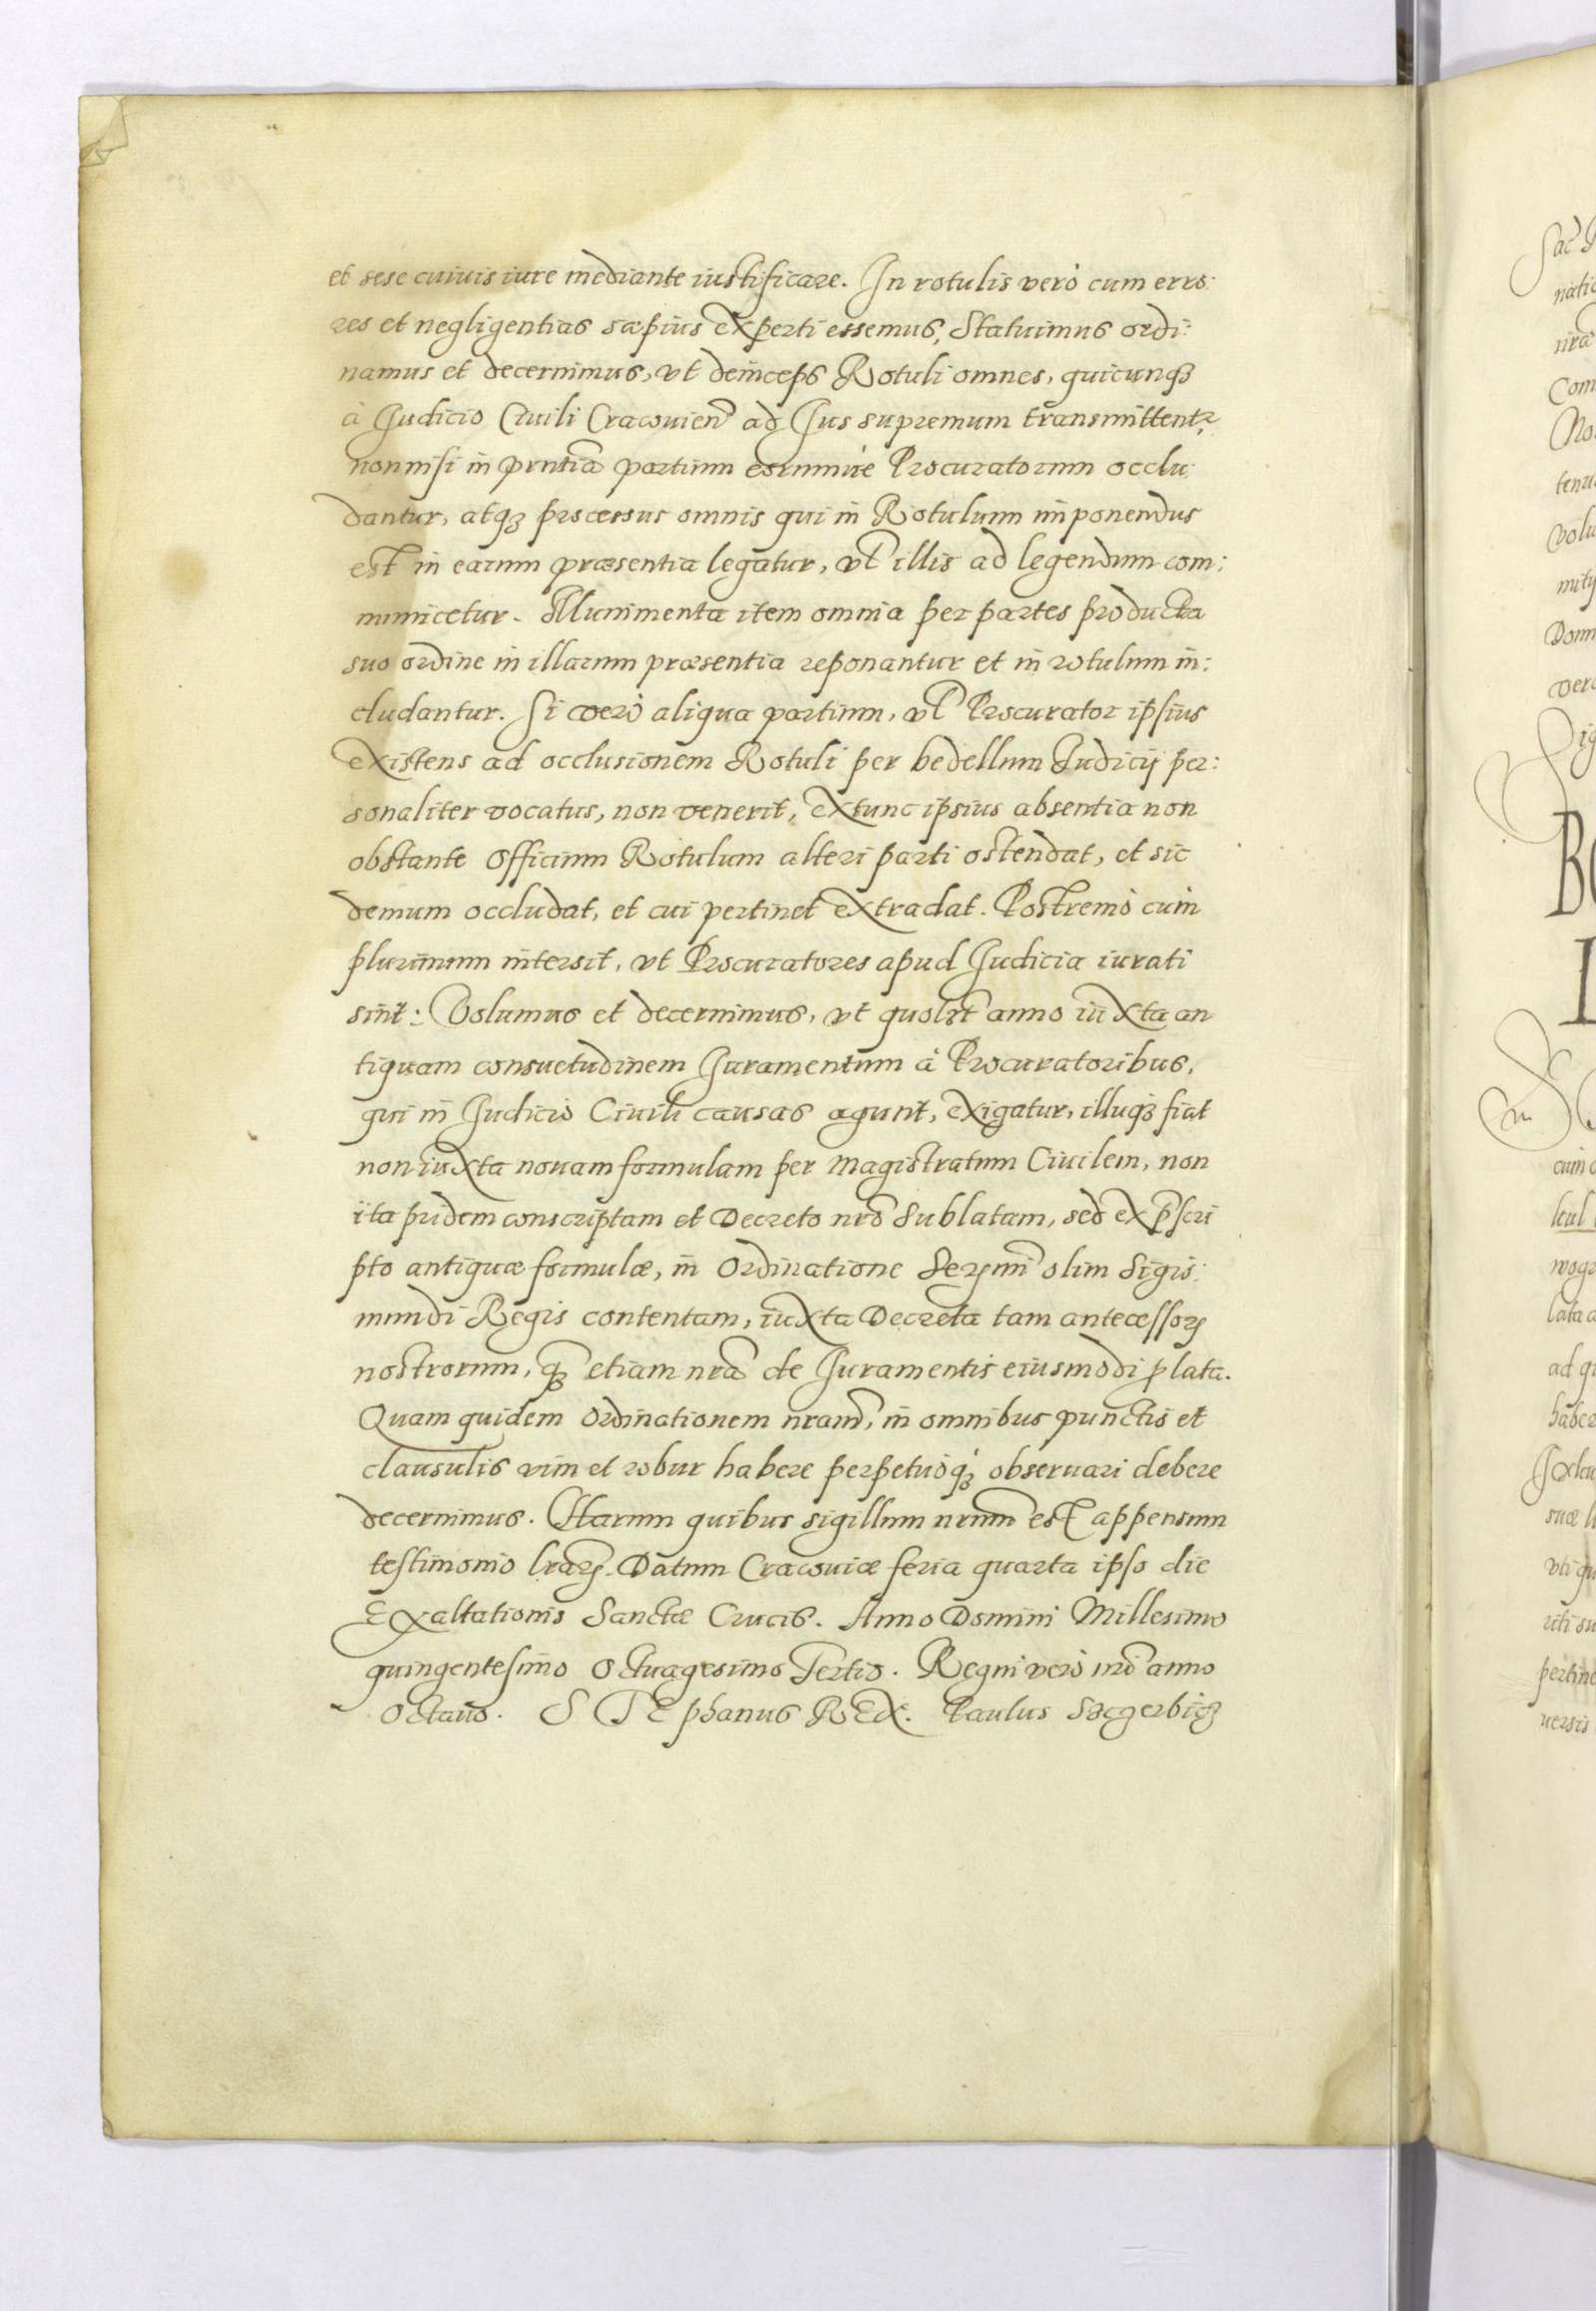 et sese cuiuis iure mediante iustificare. In rotulis verò cum erro:
res et negligentias sæpius experti essemus, Statuimus ordi:
namus et decernimus, vt deinceps Rotuli omnes, quicunqꝫ
à Judicio Ciuili Cracouien̄ ad Jus supremum transmittentr̃
non nisi in pñtia partium earumue Procuratorum occlu:
dantur, atqꝫ processus omnis qui in Rotulum imponendus
est in earum præsentia legatur, vl̃ illis ad legendum com:
municetur. Munimenta item omnia per partes producta
suo ordine in illarum præsentia reponantur et in rotulum in:
cludantur. Si verò aliqua partium, vl̃ Procurator ipsius
existens ad occlusionem Rotuli per bedellum Judicij per:
sonaliter vocatus, non venerit, extunc ipsius absentia non
obstante Officium Rotulum alteri parti ostendat, et sic
demum occludat, et cui pertinet extradat. Postremò cum
plurimum intersit, vt Procuratores apud Judicia iurati
sint: Volumus et decernimus, vt quolꝫt anno iuxta an
tiquam consuetudinem Juramentum à Procuratoribus,
qui in Judicio Ciuili causas agunt, exigatur, illuqꝫ fiat
non iuxta nouam formulam per Magistratum Ciuilem, non
ita pridem conscriptam et Decreto nr̃o Sublatam, sed ex p̃scri
pto antiquæ formulæ, in Ordinatione Serꝫmi olim Sigis:
mundi Regis contentam, iuxta Decreta tam antecessorꝫ
nostrorum, qꝫ etiam nr̃a de Juramentis eiusmodi ꝓlata.
Quam quidem Ordinationem nr̃am, in omnibus punctis et
clausulis vim et robur habere perpetuòqꝫ obseruari debere
decernimus. Harum quibus sigillum nr̃um est appensum
testimonio lr̃arꝫ. Datum Cracouiæ feria quarta ipso die
Exaltationis Sanctæ Crucis. Anno Domini Millesimo
quingentesimo Octuagesimo Tertio. Regni verò nr̃i anno
Octauo. STEphanus REX. Paulus Sczgerbicꝫ